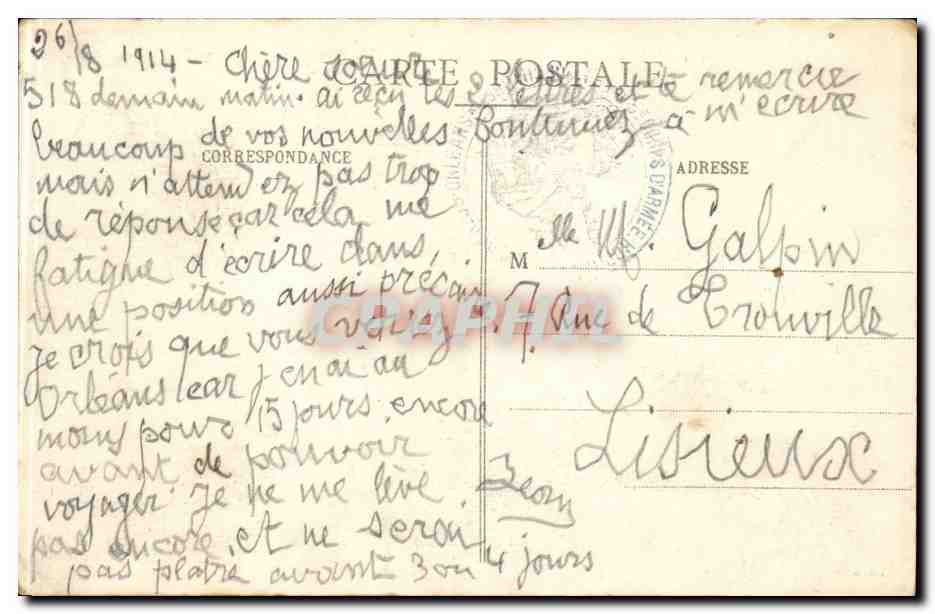 26/8 1914 - Chère soeur
CARTE POSTALE
518 demain matin. ai reçu tes 2 lettres et te remercie
beaucoup de vos nouvelles Continuez à m'écrire
CORRESPONDANCE
mais n'attendez pas trop
de réponse car cela me
fatigue d'écrire dans
une position aussi
Je crois que vous
Orléans car j'en ai au
moins pour 15 jours encore
avant de pouvoir
voyager Je ne me lève
pas encore et ne serai
pas avant 3 ou 4 jours
ADRESSE
M elle M. Galpin
17 Rue de Trouville
Lisieux
ORLEANS
D'ARMÉE
CPAPHIL